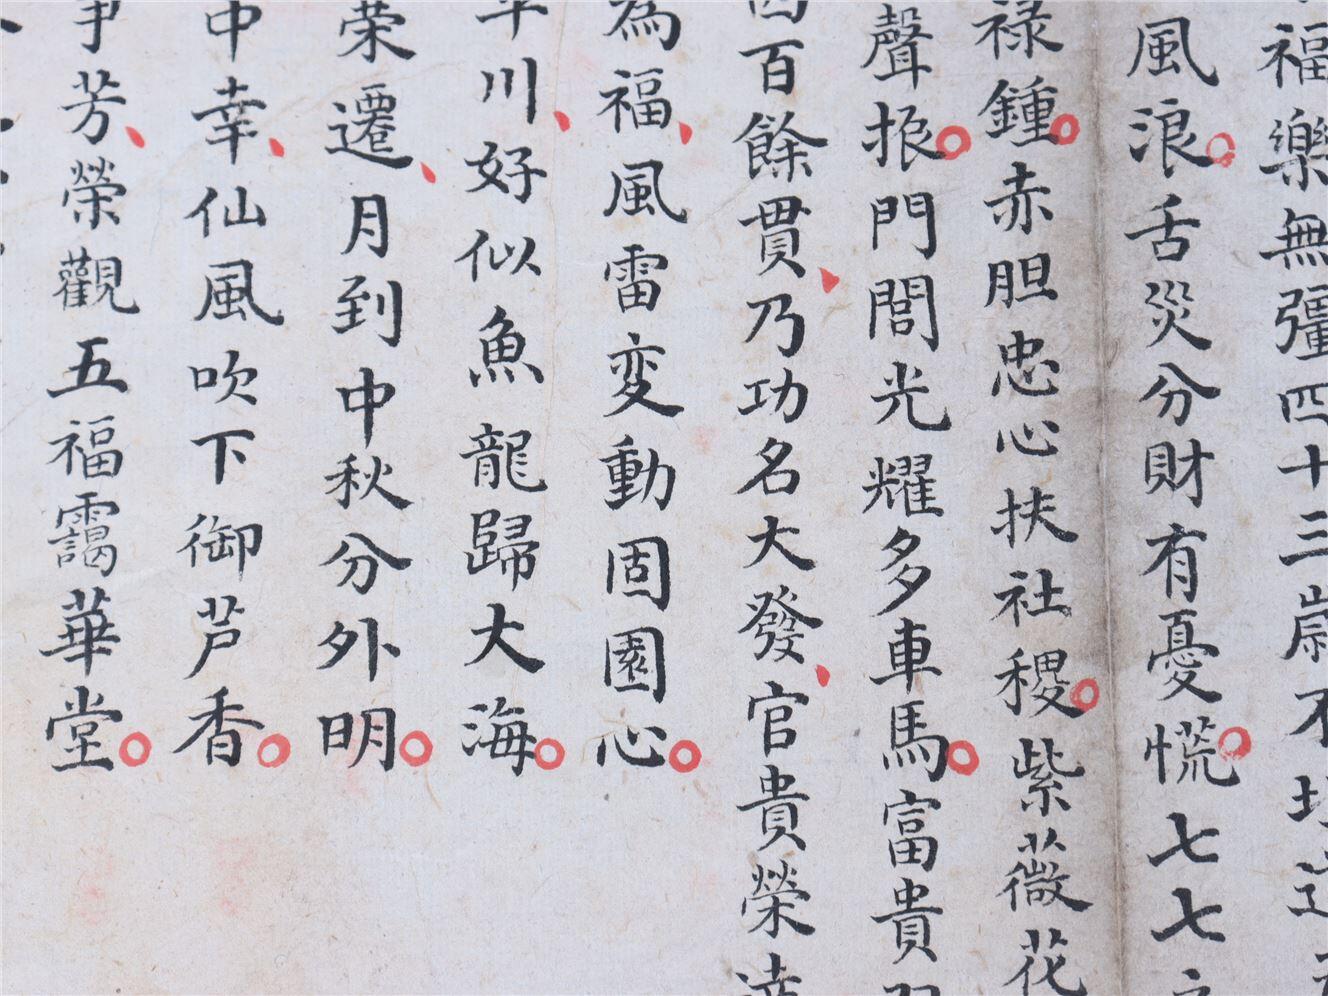 福樂無彊四十三歲不
風浪舌災分財有憂慌七七
祿鍾赤胆忠心扶社稷紫薇花
聲振門閭光耀多車馬富貴
百餘貫乃功名大發官貴榮
為福風雷变動固園心
川好似魚龍歸大海
荣遷月到中秋分外明
中幸仙風吹下御芦香
芳榮觀五福靄華堂